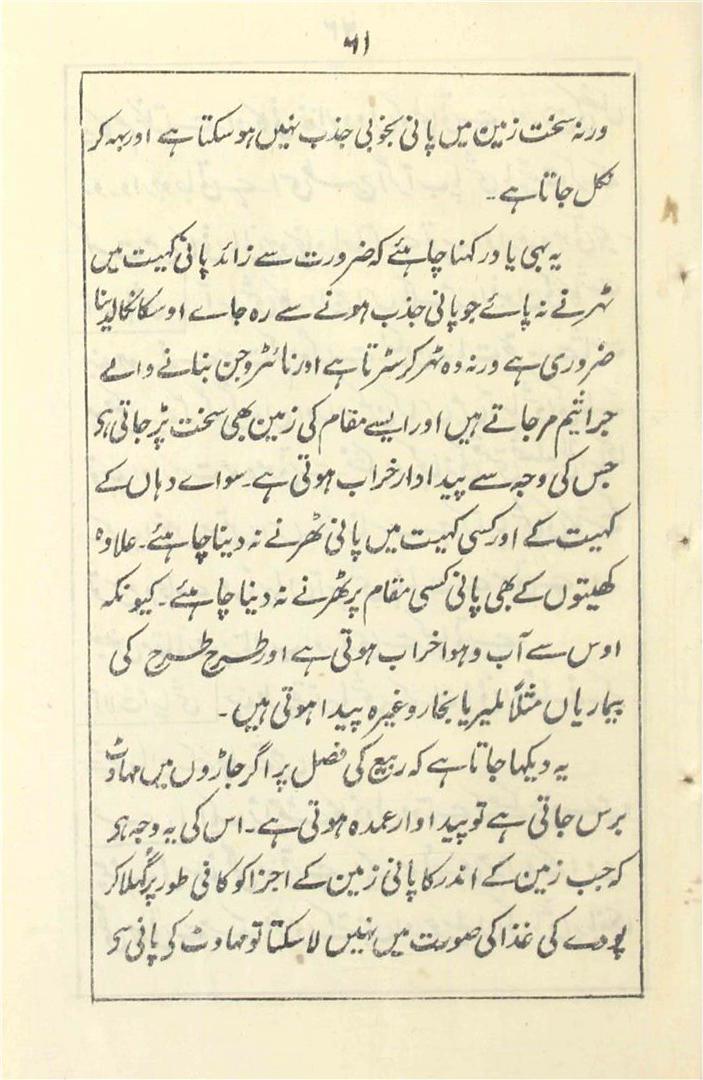 ۶۱
ورنہ سخت زمین میں پانی بخوبی جذب نہیں ہوسکتا ہے اور بہہ کر
نکل جاتا ہے۔
یہ بہی یاد رکہنا چاہئے کہ ضرورت سے زائد پانی کہیت میں
ٹہرنے نہ پائے جو پانی جذب ہونے سے رہ جاے اوسکا نکالدینا
ضروری ہے ورنہ وہ ٹہر کر سڑتا ہے اور نائٹروجن بنانے والے
جراثیم مرجاتے ہیں اور ایسے مقام کی زمین بھی سخت پڑجاتی ہی
جس کی وجہ سے پیداوار خراب ہوتی ہے۔ سواے دہاں کے
کہیت کے اور کسی کہیت میں پانی ٹھرنے نہ دینا چاہئے۔ علاوہ
کھیتوں کے بھی پانی کسی مقام پر ٹھرنے نہ دینا چاہئے۔ کیونکہ
اوس سے آب وہوا خراب ہوتی ہے اور طرح طرح کی
بیماریاں مثلاً ملیریا بخار وغیرہ پیدا ہوتی ہیں۔
یہ دیکہا جاتا ہے کہ ربیع کی فصل پر اگر جاڑوں میں مہاوٹ
برس جاتی ہے تو پیداوار عمدہ ہوتی ہے۔ اس کی یہ وجہ ہی
کہ جب زمین کے اندر کا پانی زمین کے اجزا کو کافی طور پر گہلا کر
پودے کی غذا کی صورت میں نہیں لاسکتا تو مہاوٹ کی پانی سی